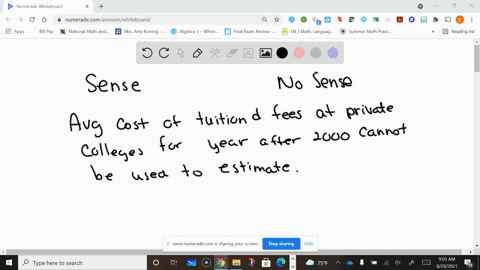 Numerade Whiteboard
numerade.com/answers/whiteboard/
Apps Bill Pay National Math and... Mrs. Amy Koning -... Algebra 1 - Whenm... Final Exam Review -... IXL | Math, Language,... Summer Math Pract... Reading list
Sense No Sense
Avg cost of tuition d fees at private
colleges for year after 2000 cannot
be used to estimate.
www.numerade.com is sharing your screen. Stop sharing Hide
Type here to search 75°F 9:03 AM
8/28/2021